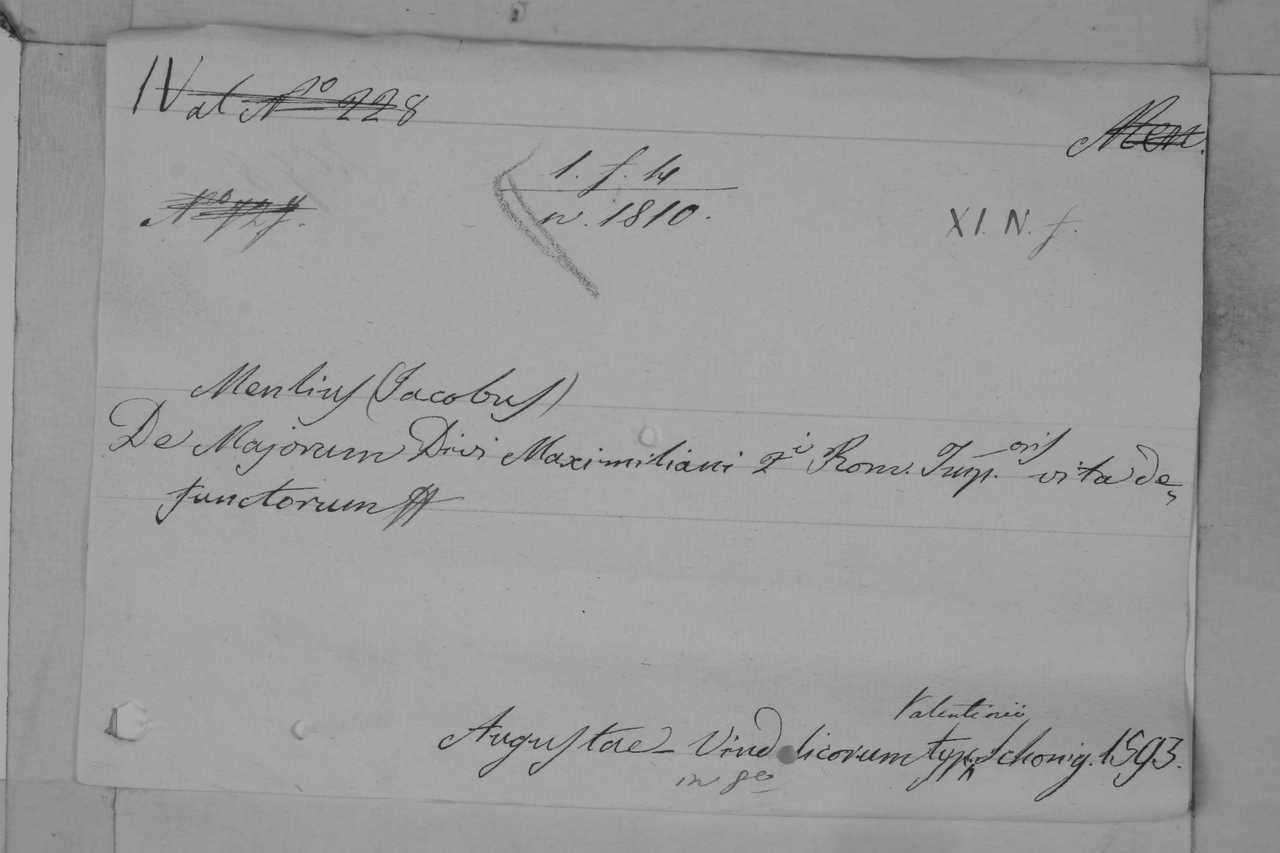 IV at No 228
Men.
1. f. 14
No 727.
n. 1810.
XI. N. f.
Menlius (Jacobus)
De Majorum Divi Maximiliani 2i Rom. Imp.oris vita de„
functorum
Valentinii
Augustae Vindelicorum typ. Schonig. 1593.
in 8o